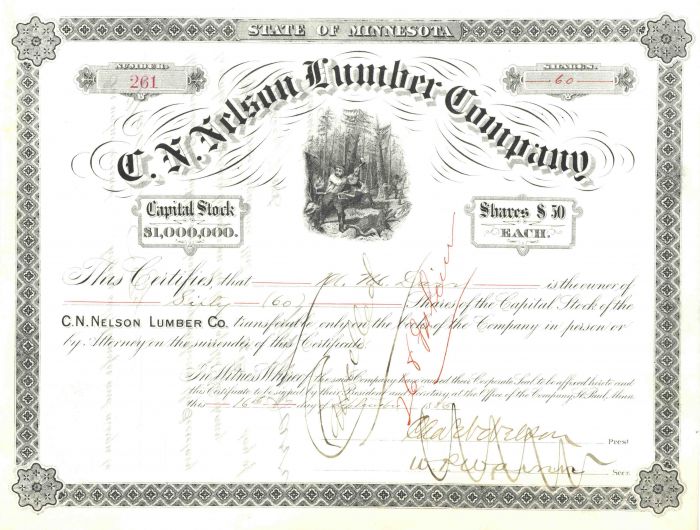 STATE OF MINNESOTA
NUMBER. 261
SHARES. 60
C. N. Nelson Lumber Company
Capital Stock $1,000,000.
Shares $50 EACH.
This Certifies that is the owner of
Sixty (60) Shares of the Capital Stock of the
C. N. NELSON LUMBER CO. transferable only on the books of the Company in person or
by Attorney on the surrender of this Certificate.
In Witness Whereof the said Company have caused their Corporate Seal to be affixed hereto and
this Certificate to be signed by their President and Secretary at the Office of the Company St. Paul, Minn
this 16th day of 188
Cancelled
Prest
Secr.